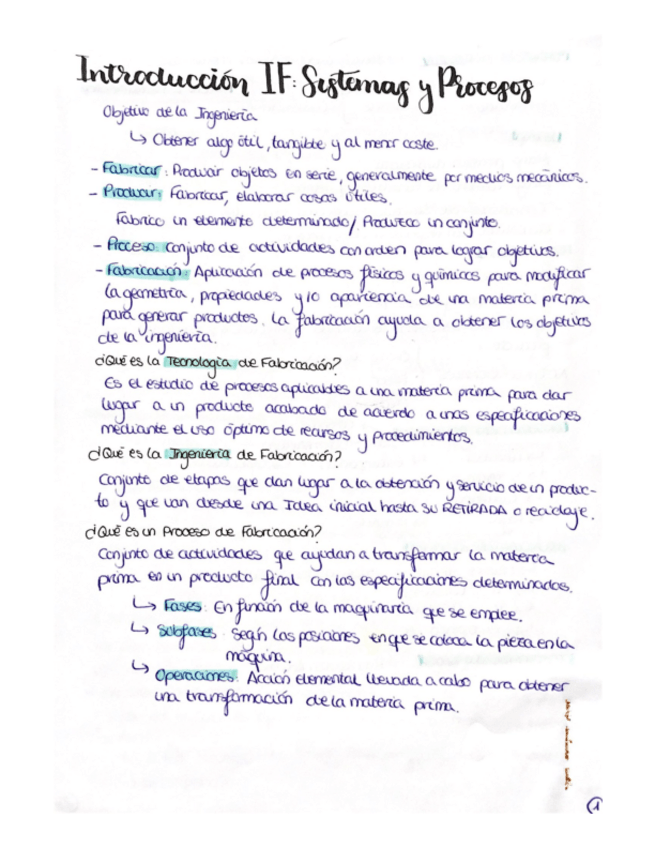 Introducción IF: Sistemas y Procesos
Objetivo de la Ingeniería
↳ Obtener algo útil, tangible y al menor coste.
- Fabricar: Producir objetos en serie, generalmente por medios mecánicos.
- Producir: Fabricar, elaborar cosas útiles.
Fabrico un elemento determinado / Produzco un conjunto.
- Proceso: Conjunto de actividades con orden para lograr objetivos.
- Fabricación: Aplicación de procesos físicos y químicos para modificar
la geometría, propiedades y/o apariencia de una materia prima
para generar productos. La fabricación ayuda a obtener los objetivos
de la ingeniería.
¿Qué es la Tecnología de Fabricación?
Es el estudio de procesos aplicables a una materia prima para dar
lugar a un producto acabado de acuerdo a unas especificaciones
mediante el uso óptimo de recursos y procedimientos.
¿Qué es la Ingeniería de Fabricación?
Conjunto de etapas que dan lugar a la obtención y servicio de un produc-
to y que van desde una Idea inicial hasta su RETIRADA o reciclaje.
¿Qué es un Proceso de Fabricación?
Conjunto de actividades que ayudan a transformar la materia
prima en un producto final con las especificaciones determinadas.
↳ Fases: En función de la maquinaria que se emplee.
↳ Subfases: Según las posiciones en que se coloca la pieza en la
máquina.
↳ Operaciones: Acción elemental llevada a cabo para obtener
una transformación de la materia prima.
1